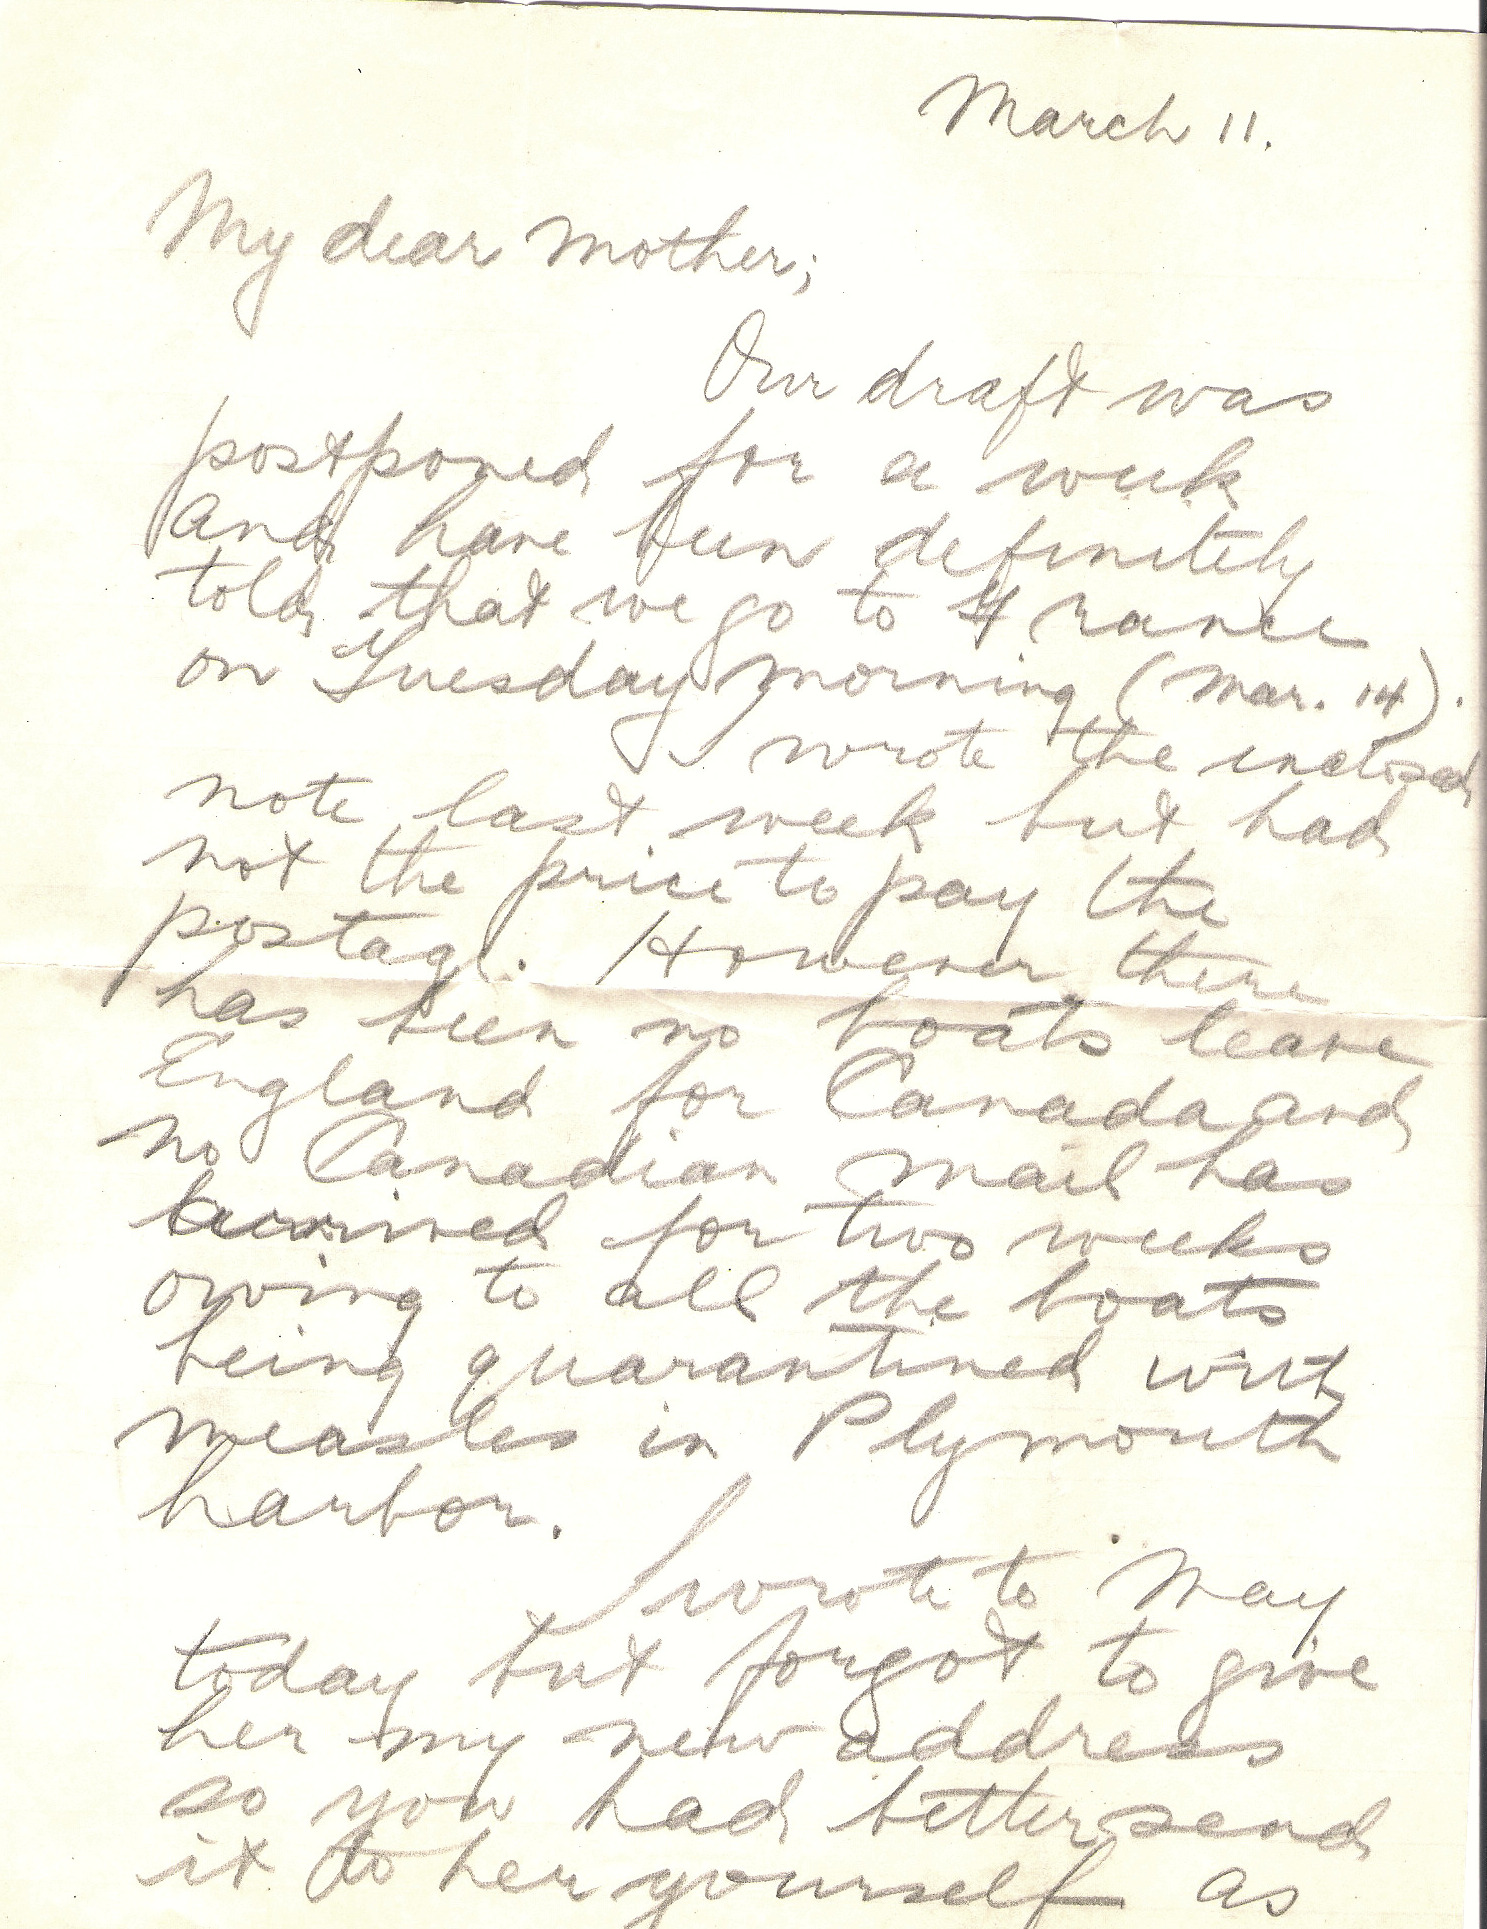 March 11.
My dear Mother;
Our draft was
postponed for a week
and have been definitely
told that we go to France
on Tuesday morning (Mar. 14).
I wrote the enclosed
note last week but had
not the price to pay the
postage. However there
has been no boats leave
England for Canada and
no Canadian mail has
arrived for two weeks
owing to all the boats
being quarantined with
measles in Plymouth
harbor.
I wrote to May
today but forgot to give
her my new address
so you had better send
it to her yourself as